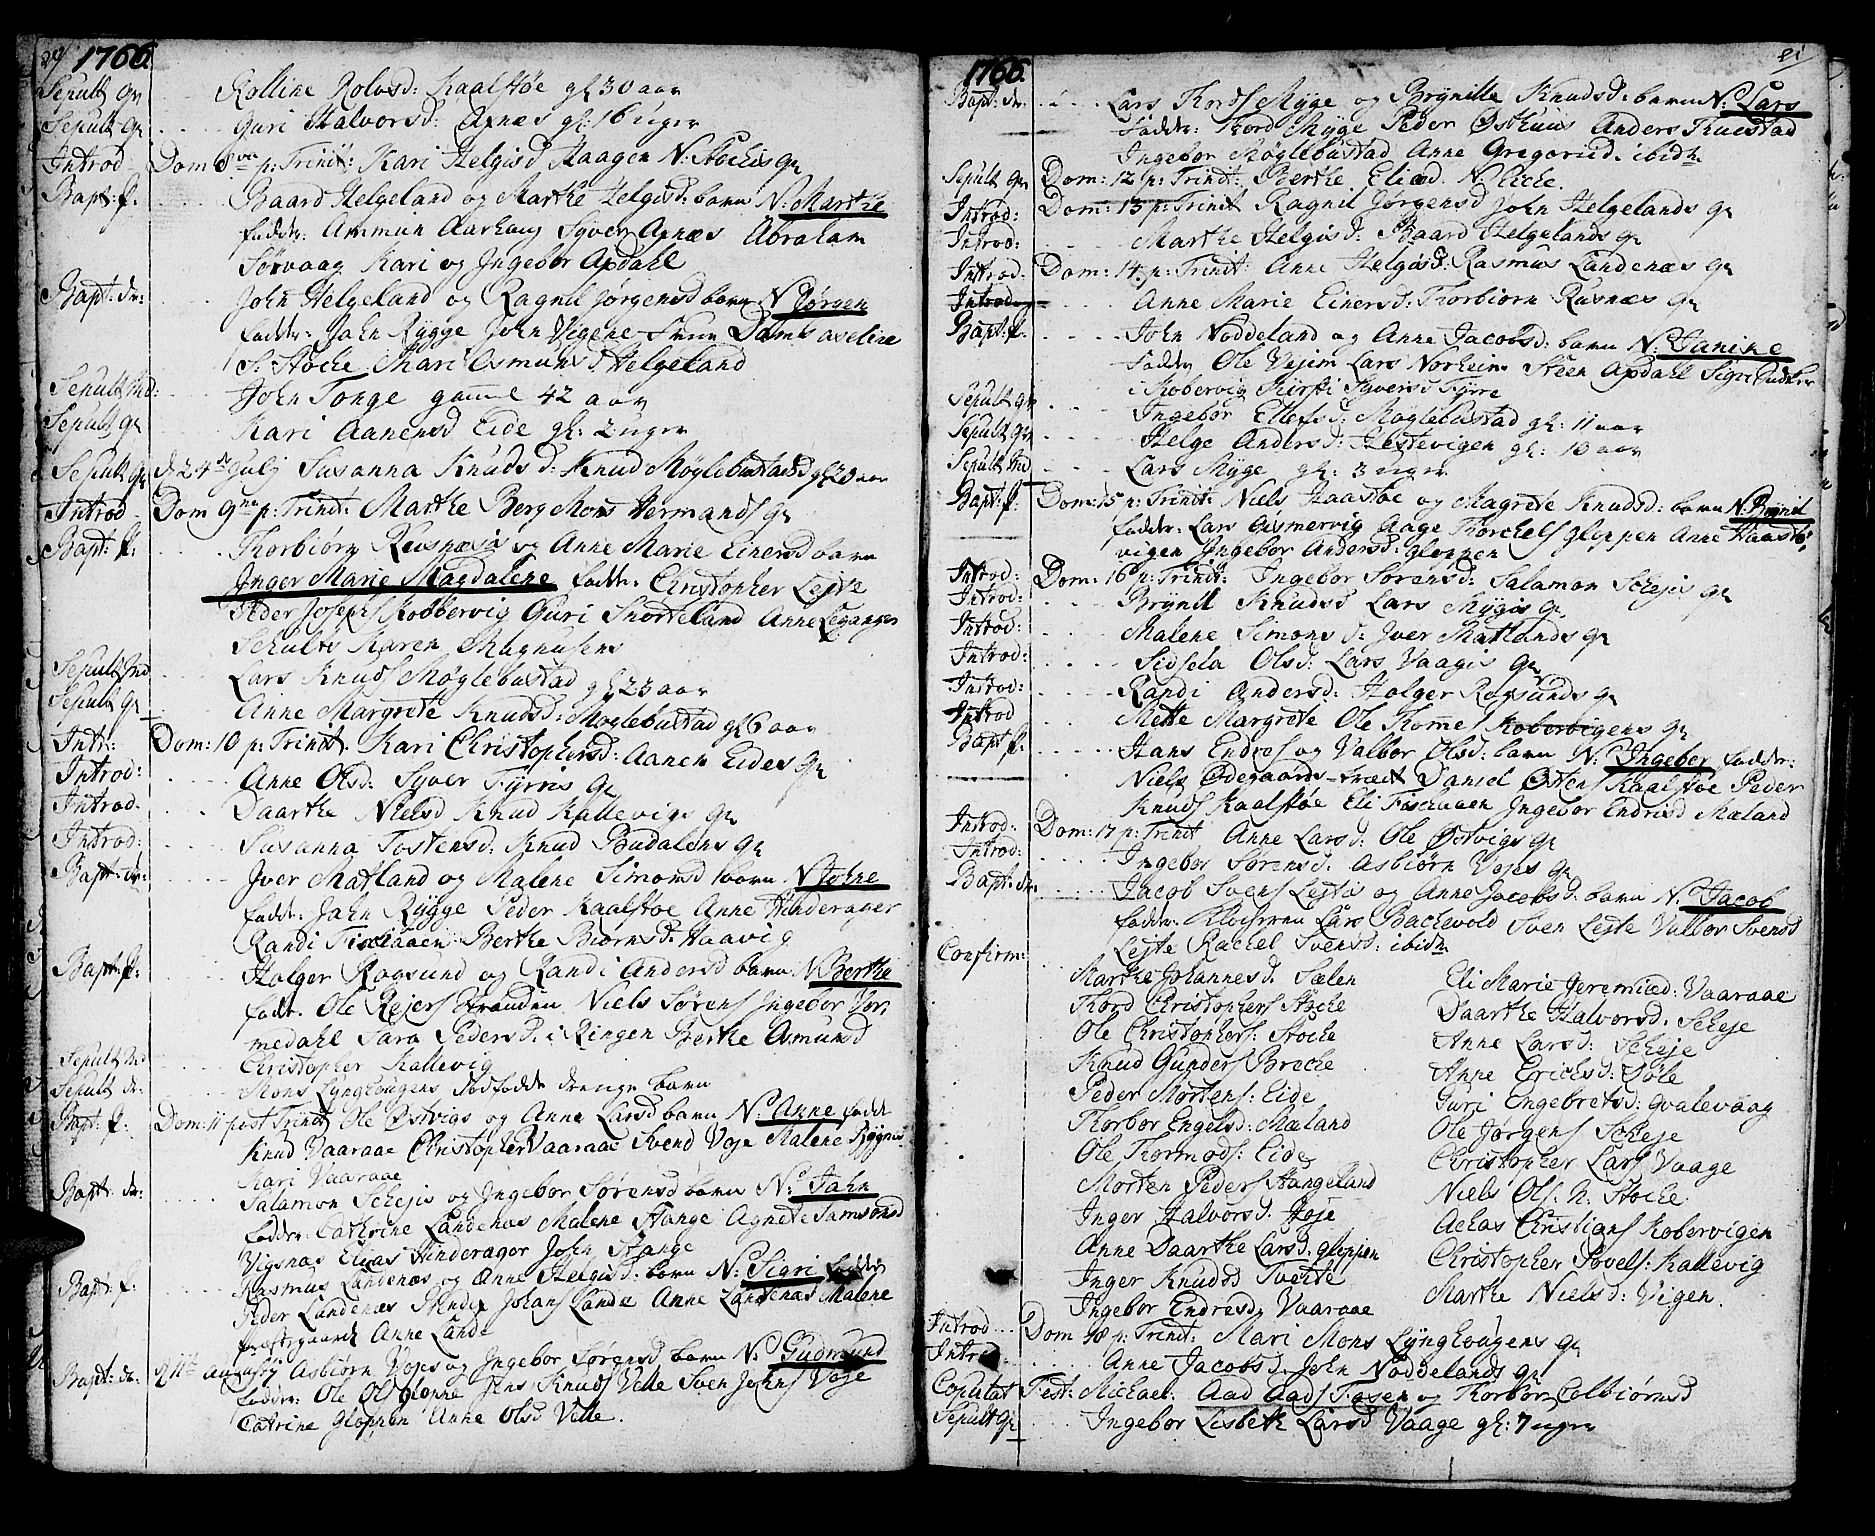 20/ 1766.
Sepult Qv Rolline Rolvsd: Kaalstøe gl 30 aar
Sepult Qv Guri Halvorsd: Apnæs gl: 16 uger
Introd Dom 8va p: Trinit: Kari Helgisd Haagen N: Stockis Qv
Bapt: f. Baard Helgeland og Marthe Helgisd: barn N: Marthe
faddr: Ammun Aarhaug Syver Apnæs Abraham
Sørvaag Kari og Ingebor Apdahl
Bapt: dr: John Helgeland og Ragnil Jørgensd barn N Jørgen
faddr: John Rygge John Vigene Axeline
S: Stocke Mari Osmunsd Helgeland
Sepult Md: John Tonge gamel 42 aar
Sepult Qv Kari Aanensd Eide gl: 2 uger
Sepult Qv d 24de July Susanna Knudsd: Knud Møglebustads gl 20 aar
Introd Dom 9na p: Trinit: Marthe Berg Mons Hermands Qv
Bapt: f: Thorbiørn Reusnæsis og Anne Marie Einersd barn
Inger Marie Magdalene faddr: Christopher Lejte
Peder Josephs Kobbervig Guri Snorteland Anne Leganger
Schults Karen Magnusens
Sepult Md Lars Knuds Møglebustad gl 23 aar
Sepult Qv Anne Margrete Knudsd: Moglebustad gl 6 aar
Intr: Dom: 10 p: Trinit: Kari Christophersd: Aanen Eides Qv
Introd: Anne Olsd: Syver Tyrris Qv
Introd: Daarthe Nielsd Knud Kallevigs Qv
Introd: Susanna Tostensd: Knud Budalens Qv
Bapt: dr: Iver Matland og Malene Simonsd barn N Johne
faddr: John Rygge Peder Kaalstøe Anne Hinderager
Randi Fischaaen Berthe Biørnsd: Haavig
Bapt: f: Holger Rogsund og Randi Andersd barn N Berthe
fadr. Ole Rejers Stranden Niels Sørens Ingebor Vor,
medahl Sara Pedersd: i Ringen Berthe Asmunsd
Sepult Md Christopher Kallevig
Sepult dr: Mons Lynghougens dødfødde drenge barn
Bapt: f: Dom: 11 post Trinit Ole Østvigs og Anne Larsd barn N: Anne fadr
Knud Vaaraae Christopher Vaaraae Svend Voje Malene Bygnes
Kari Vaaraae
Bapt: dr: Salamon Schejis og Ingebor Sørensd barn N: John
faddr: Cathrine Landenæs Malene Stange Agnete Samsonsd
Vigsnæs Elias Hinderager John Stange
Bapt: f. Rasmus Landenæs og Anne Helgisd: barn N: Sigri faddr
Peder Landenæs Johans Lande Anne Landenæs Malene
Præstegaard Anne Lande
Bapt: dr: d 11te Augusty Asbiørn Vojes og Ingebor Sørensd barn N: Gudmund
faddr: Ole Ols Glonne Jens Knuds Velle Sven Johns Voje
Catrine Gloppen Anne Olsd Velle.
21/
1766.
Bapt: dr. Lars Thords Myge og Brynille Knudsd: barn N: Lars
faddr: Thord Myge Peder Østhuus Anders Thuestad
Ingebor Møglebustad Anne Gregorisd: ibidm
Sepult Qv Dom: 12 p: Trinit: Berthe Eliæd. N Ecke.
Introd: Dom: 13 p: Trinit Ragnil Jørgensd John Helgelands Qv
Introd: Marthe Helgisd: Baard Helgelands Qv
Introd: Dom: 14 p: Trinit: Anne Helgisd: Rasmus Landenæs Qv
Introd Anne Marie Einersd: Thorbiørn Rusnæs Qv
Bapt: f. John Noddeland og Anne Jacobsd: barn N: Janike
faddr Ole Vejim Lars Norheim Steen Apdahl Sigri
i Kobervig Kirsti Syversd Tyrre
Sepult Qv Ingebor Ellefsd: Moglebustad gl: 11 aar
Sepult Qv Helge Andersd: Hestevigen gl: 13 aar
Sepult Md Lars Myge gl: 3 uger
Bapt: f: Dom: 15 p: Trinit: Niels Haastøe og Magrete Knudsd: barn N: Brynil
faddr: Lars Asmervig Aage Thorchels Gloppen Anne Haastø,
vigen Ingebor Andersd: Gloppen
Introd: Dom: 16 p: Trinit: Ingebor Sørensd: Salamon Schejis Qv
Introd: Brynil Knudsd Lars Mygis Qv
Introd: Malene Simonsd: Iver Matlands Qv
Introd: Sidsela Olsd: Lars Vaagis Qv
Introd: Randi Andersd: Holger Rogsunds Qv
Introd Mette Margrete Ole Thomes Kobervigens Qv
Bapt f: Hans Endres og Valbor Olsd: barn N: Ingebor faddr:
Niels Ødegaards Daniel Østens Kaalstøe Peder
Knuds Kaalstøe Eli Fischaaen Ingebor Endrisd Mæland
Introd: Dom: 17 p: Trinit Anne Larsd: Ole Østvigs Qv
Introd: Ingebor Sørensd: Asbiørn Vojes Qv
Bapt: dr. Jacob Svens Lejtes og Anne Jacobsd: barn N: Jacob
faddr: Klocheren Lars Backevold Sven Lejte Valbor Svensd
Lejte Rachel Svensd: ibidm
Confirm: Marthe Johannesd: Sælen
Thord Christophers Stocke
Ole Christophers: Stocke
Knud Gunders Brecke
Peder Mortens: Eide
Thorbor Engelsd: Mæland
Ole Thormods: Eide
Morten Peders Stangeland
Inger Halvorsd: Voje
Anne Daarthe Larsd: Gloppen
Inger Knudsd Tveite
Ingebor Endresd Vaaraae
Eli Marie Jeremiæd: Vaaraae
Daarthe Halvorsd: Scheje
Anne Larsd: Scheje
Anne Erichsd: Døle
Guri Engebretsd: Qvalevaag
Ole Jørgens Scheje
Christopher Lars Vaage
Niels Ols. N: Stocke.
Achas Christians Kobervigen
Christopher Povels: Kallevig
Marthe Nielsd: Vigen.
Introd Dom 18 p: Trinit: Mari Mons Lynghougens Qv
Introd Anne Jacobsd. John Noddelands Qv
Copulat Fest: Michael: Aad Aads Fosen og Thorbor Colbiørnsd
Sepult Qv Ingebor Lisbeth Larsd Vaage gl: 7 uger